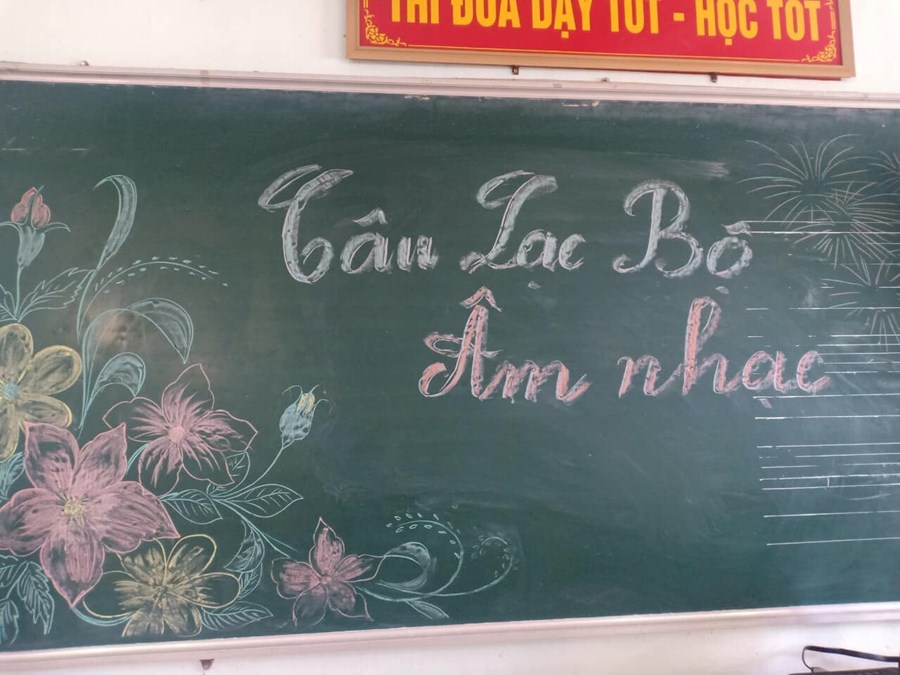 THI ĐUA DẠY TỐT - HỌC TỐT
Câu Lạc Bộ
Âm nhạc